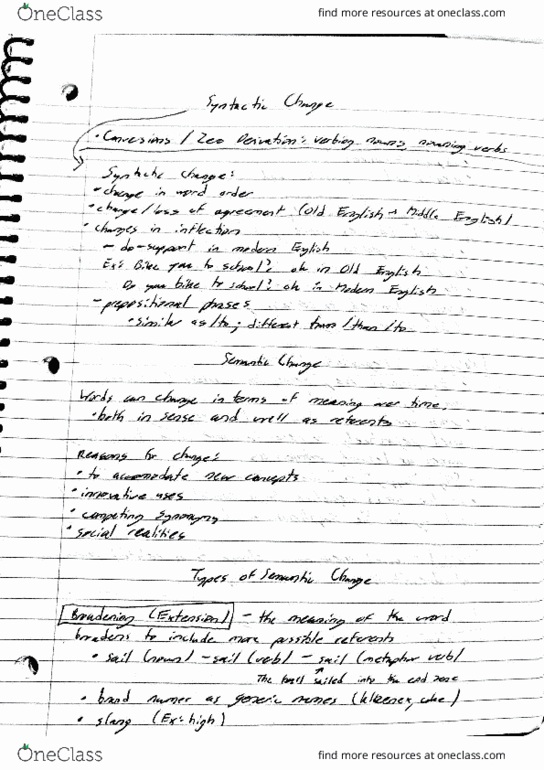 OneClass
find more resources at oneclass.com
Syntactic Change
• Conversions / Zero Derivation: verbing nouns, nouning verbs
Syntactic Change:
• change in word order
• change/loss of agreement (Old English → Middle English)
• changes in inflection
– do-support in modern English
Ex: Bike you to school? ok in Old English
Do you bike to school? ok in Modern English
– prepositional phrases
• similar as/to; different from/than/to
Semantic Change
Words can change in terms of meaning over time.
• both in sense and well as referents
Reasons for change:
• to accomodate new concepts
• innovative uses
• competing synonyms
• social realities
Types of Semantic Change
Broadening (Extension) – the meaning of the word
broadens to include more possible referents
• sail (noun) – sail (verb) – sail (metaphor verb)
The ball sailed into the end zone
• brand names as generic names (kleenex, coke)
• slang (Ex: high)
OneClass
find more resources at oneclass.com